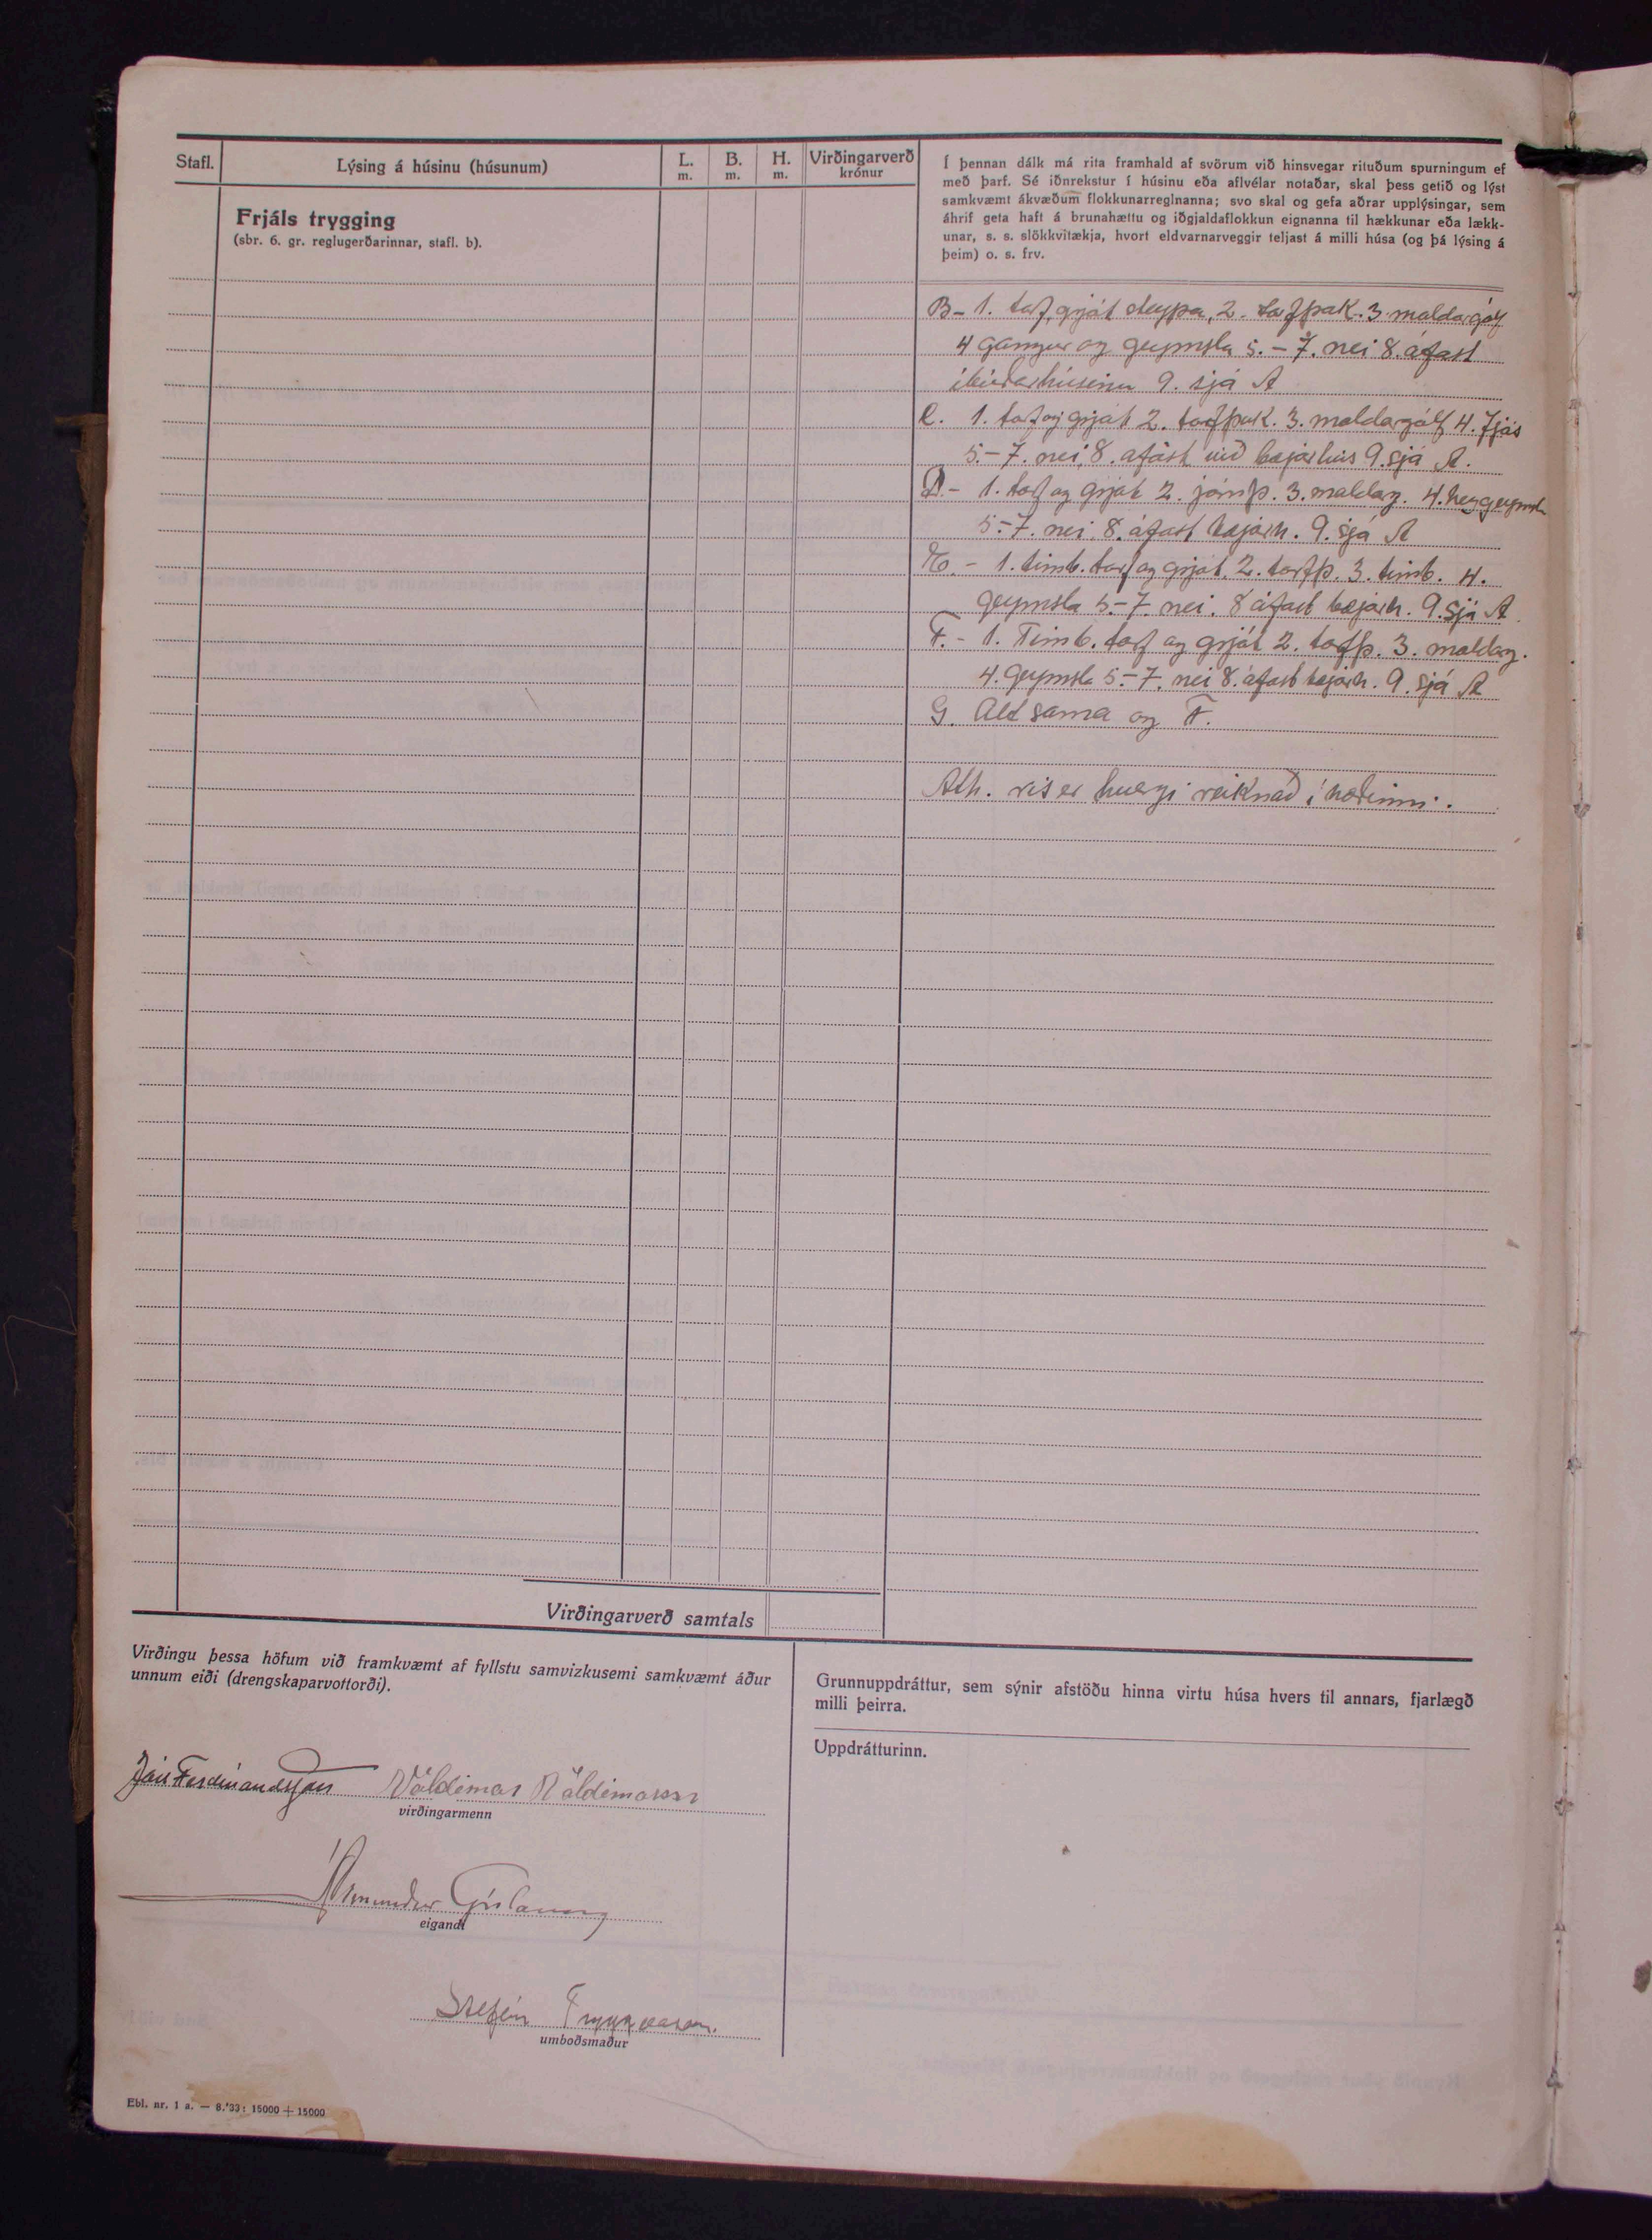 Stafl.
Lýsing á húsinu (húsunum)
L.
m.
B.
m.
H.
m.
Virðingarverð
krónur
Frjáls trygging
(sbr. 6. gr. reglugerðarinnar, stafl. b).
Í þennan dálk má rita framhald af svörum við hinsvegar rituðum spurningum ef
með þarf. Sé iðnrekstur í húsinu eða aflvélar notaðar, skal þess getið og lýst
samkvæmt ákvæðum flokkunarreglnanna; svo skal og gefa aðrar upplýsingar, sem
áhrif geta haft á brunahættu og iðgjaldaflokkun eignanna til hækkunar eða lækk-
unar, s. s. slökkvitækja, hvort eldvarnarveggir teljast á milli húsa (og þá lýsing á
þeim) o. s. frv.
B- 1. torf, grjót steypa, 2. torfþak. 3 moldargólf
4 gangur og geymsla 5.-7. nei 8. áfast
íbúðarhúsinu 9. sjá A
C. 1. torf og grjót 2. torfþak. 3. moldargólf 4. Fjós
5.-7. nei, 8. áfast við bæjarhús 9. sjá A.
D.- 1. torf og grjót 2. járnþ. 3. moldarg. 4. heygeymsla
5.-7. nei. 8. áfast bæjarh. 9. sjá A
E.- 1. timb. torf og grjót. 2. torfþ. 3. timb. 4.
geymsla 5.-7. nei. 8 áfast bæjarh. 9. sjá A
F.- 1. Timb. torf og grjót 2. torfþ. 3. moldarg.
4. geymsla 5.-7. nei 8. áfast bæjarh. 9. sjá A
G. Alt sama og F.
Ath. ris er hvergi reiknað í hæðinni.
Virðingarverð samtals
Virðingu þessa höfum við framkvæmt af fyllstu samvizkusemi samkvæmt áður
unnum eiði (drengskaparvottorði).
Jón Ferdinandsson Valdimar Valdimarsson
virðingarmenn
Ásmundur Gíslason
eigandi
Stefán Tryggvason.
umboðsmaður
Grunnuppdráttur, sem sýnir afstöðu hinna virtu húsa hvers til annars, fjarlægð
milli þeirra.
Uppdrátturinn.
Ebl. nr. 1 a. — 8.'33: 15000 + 15000